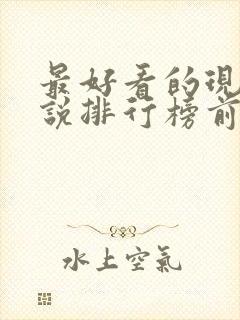 最好看的現
說排行榜前
水上空氣